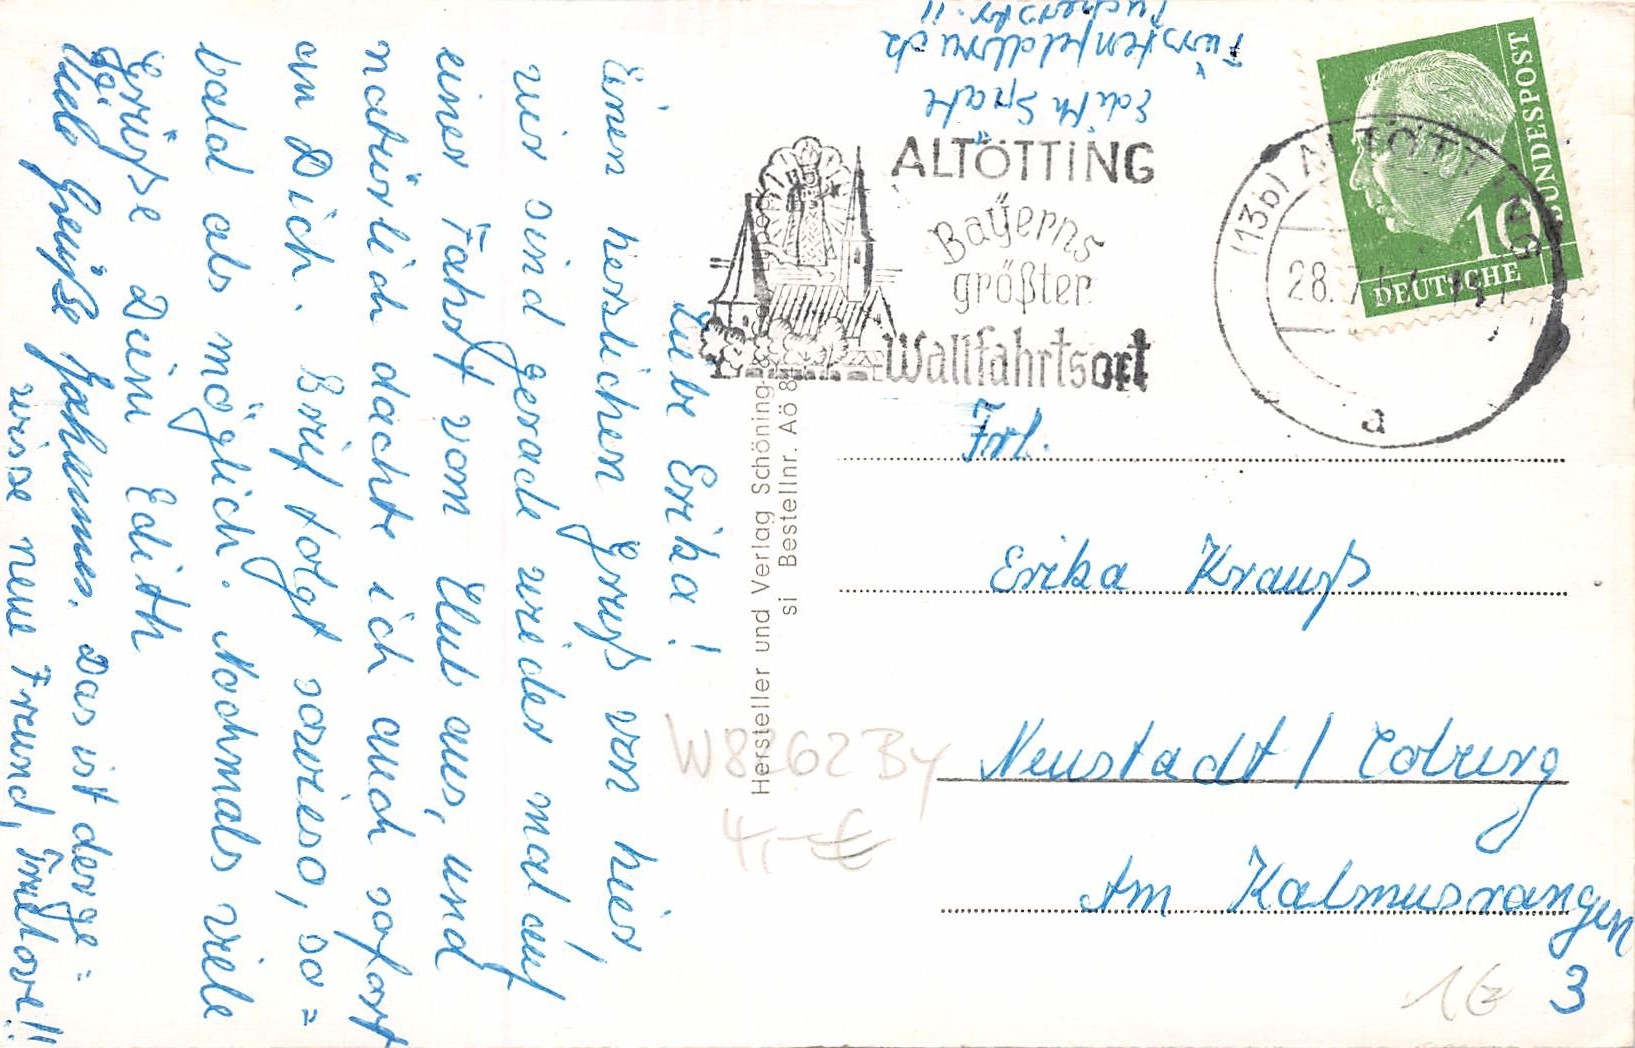 Liebe Erika!
Einen herzlichen Gruß von hier,
wir sind gerade wieder mal auf
einer Fahrt vom Club aus, und
natürlich dachte ich auch sofort
an Dich. Brief folgt sowieso, so=
bald als möglich. Nochmals viele
Grüße Deine Edith
Viele Grüße Johannes. Das ist derge=
wisse neue Freund,
Edith Spatz
Fürstenfeldbruck
ALTÖTTING
Bayerns
größter
Wallfahrtsort
(13b) ALTÖTTING
28.7
a
10
DEUTSCHE
BUNDESPOST
Hersteller und Verlag Schöning &
si Bestellnr. Aö 8
Frl.
Erika Krauß
Neustadt / Coburg
Am Kalmusrangen
3
W8262 By
4,-€
1€